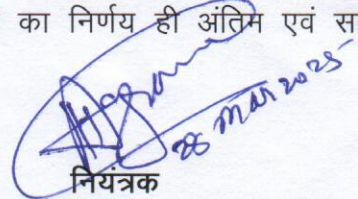 का निर्णय ही अंतिम एवं स
28 Mar 2025
नियंत्रक